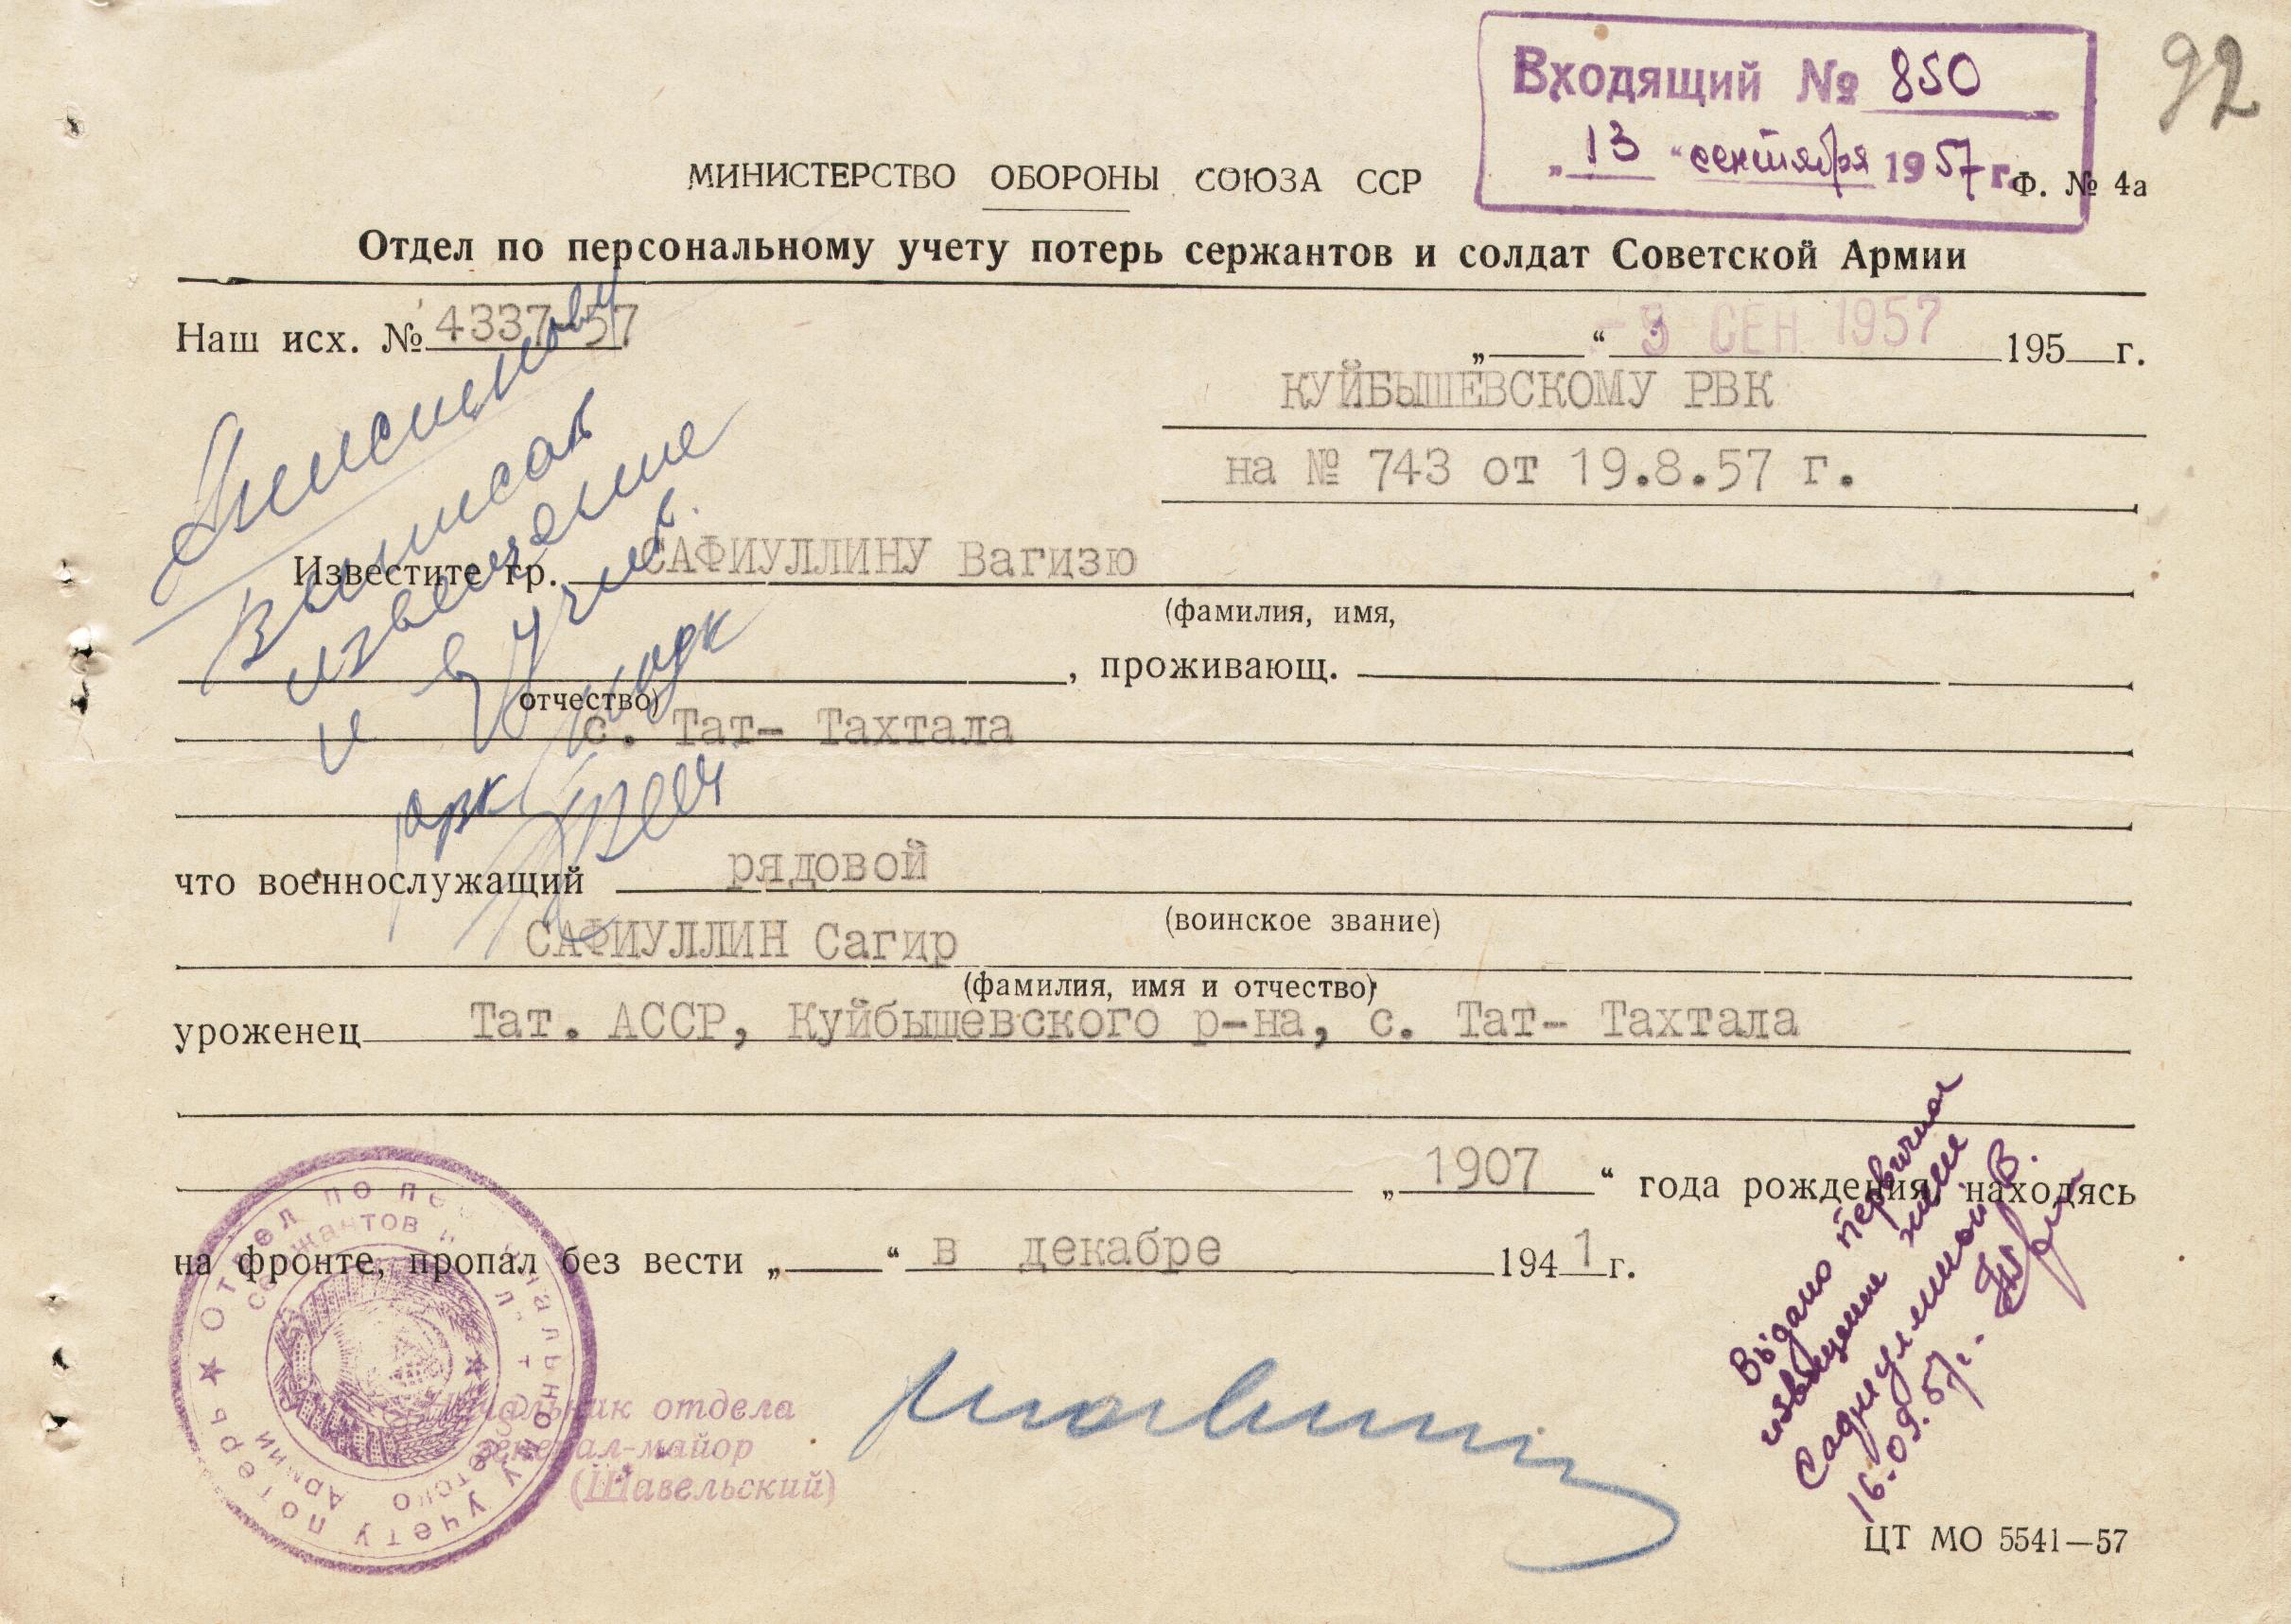 Входящий № 850
92
„13“ сентября 1957 г.
МИНИСТЕРСТВО ОБОРОНЫ СОЮЗА ССР
Ф. № 4а
Отдел по персональному учету потерь сержантов и солдат Советской Армии
Наш исх. № 4337-57
„ “ -9 СЕН 1957 195 г.
КУЙБЫШЕВСКОМУ РВК
на № 743 от 19.8.57 г.
Выписать
извещение
и в
Известите гр. САФИУЛЛИНУ Вагизю
(фамилия, имя,
, проживающ.
отчество)
с. Тат- Тахтала
что военнослужащий рядовой
(воинское звание)
САФИУЛЛИН Сагир
(фамилия, имя и отчество)
уроженец Тат. АССР, Куйбышевского р-на, с. Тат- Тахтала
„1907“ года рождения, находясь
на фронте, пропал без вести „ “ в декабре 1941 г.
Отдел по персональному учету потерь
сержантов и солдат Советской Армии
Начальник отдела
генерал-майор
(Шавельский)
Выдано первичное
извещение жене
16.09.57 г.
ЦТ МО 5541—57